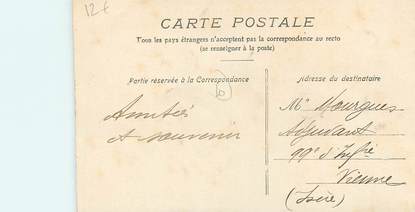 12€
CARTE POSTALE
Tous les pays étrangers n'acceptent pas la correspondance au recto
(se renseigner à la poste)
Partie réservée à la Correspondance
Adresse du destinataire
Amitiés
et souvenir
Mr Mourgues
Adjudant
99e d'Infie
Vienne
(Isère)